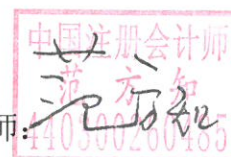 中国注册会计师
范方知
师：
440300260485